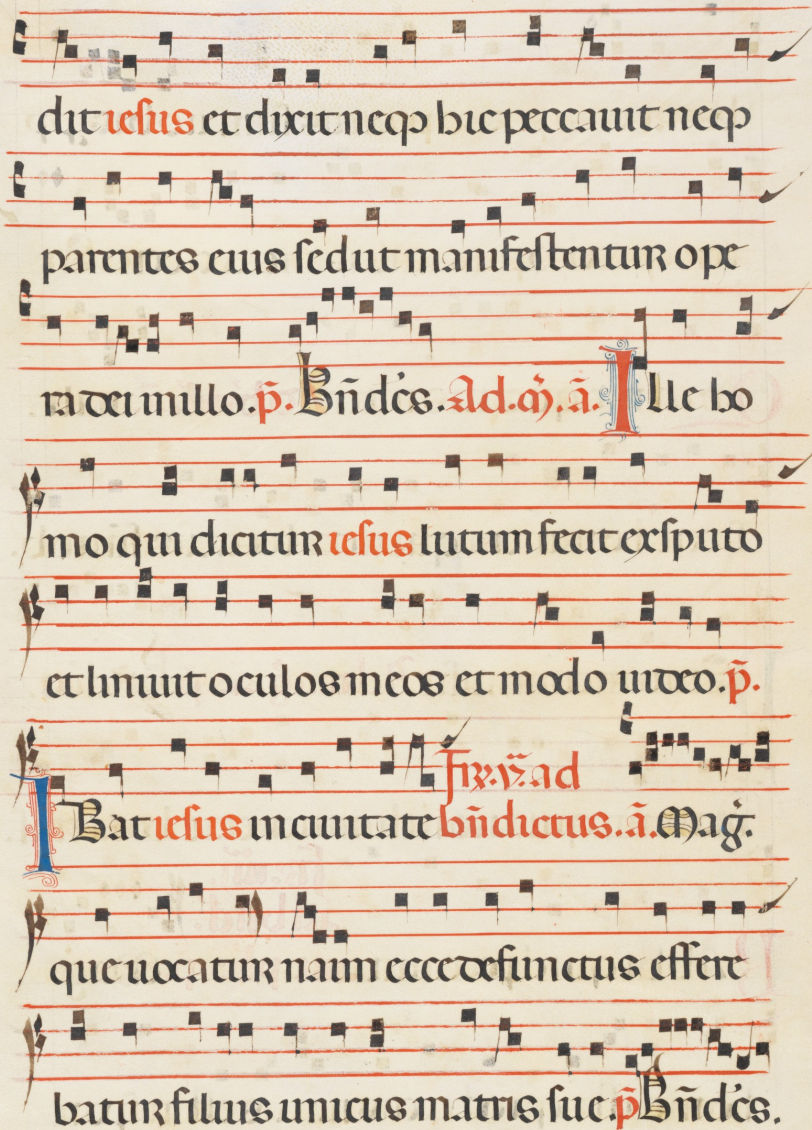 dit iesus et dixit neqꝫ hic peccauit neqꝫ
parentes eius sed ut manifestentur ope
ra dei in illo. p̃. Bñdc̃s. Ad. m̃. ã. Ille ho
mo qui dicitur iesus lutum fecit ex sputo
et liniuit oculos meos et modo uideo. p̃.
Ibat iesus in ciuitate bñdictus. ã. Mag̃.
que uocatur naim ecce defunctus effere
batur filius unicus matris sue. p̃ Bñdc̃s.